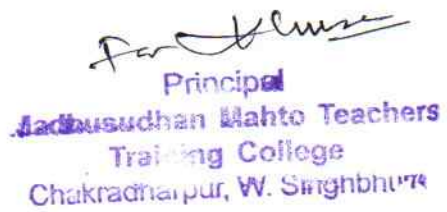 For
Principal
Madhusudhan Mahto Teachers
Training College
Chakradharpur, W. Singhbhum